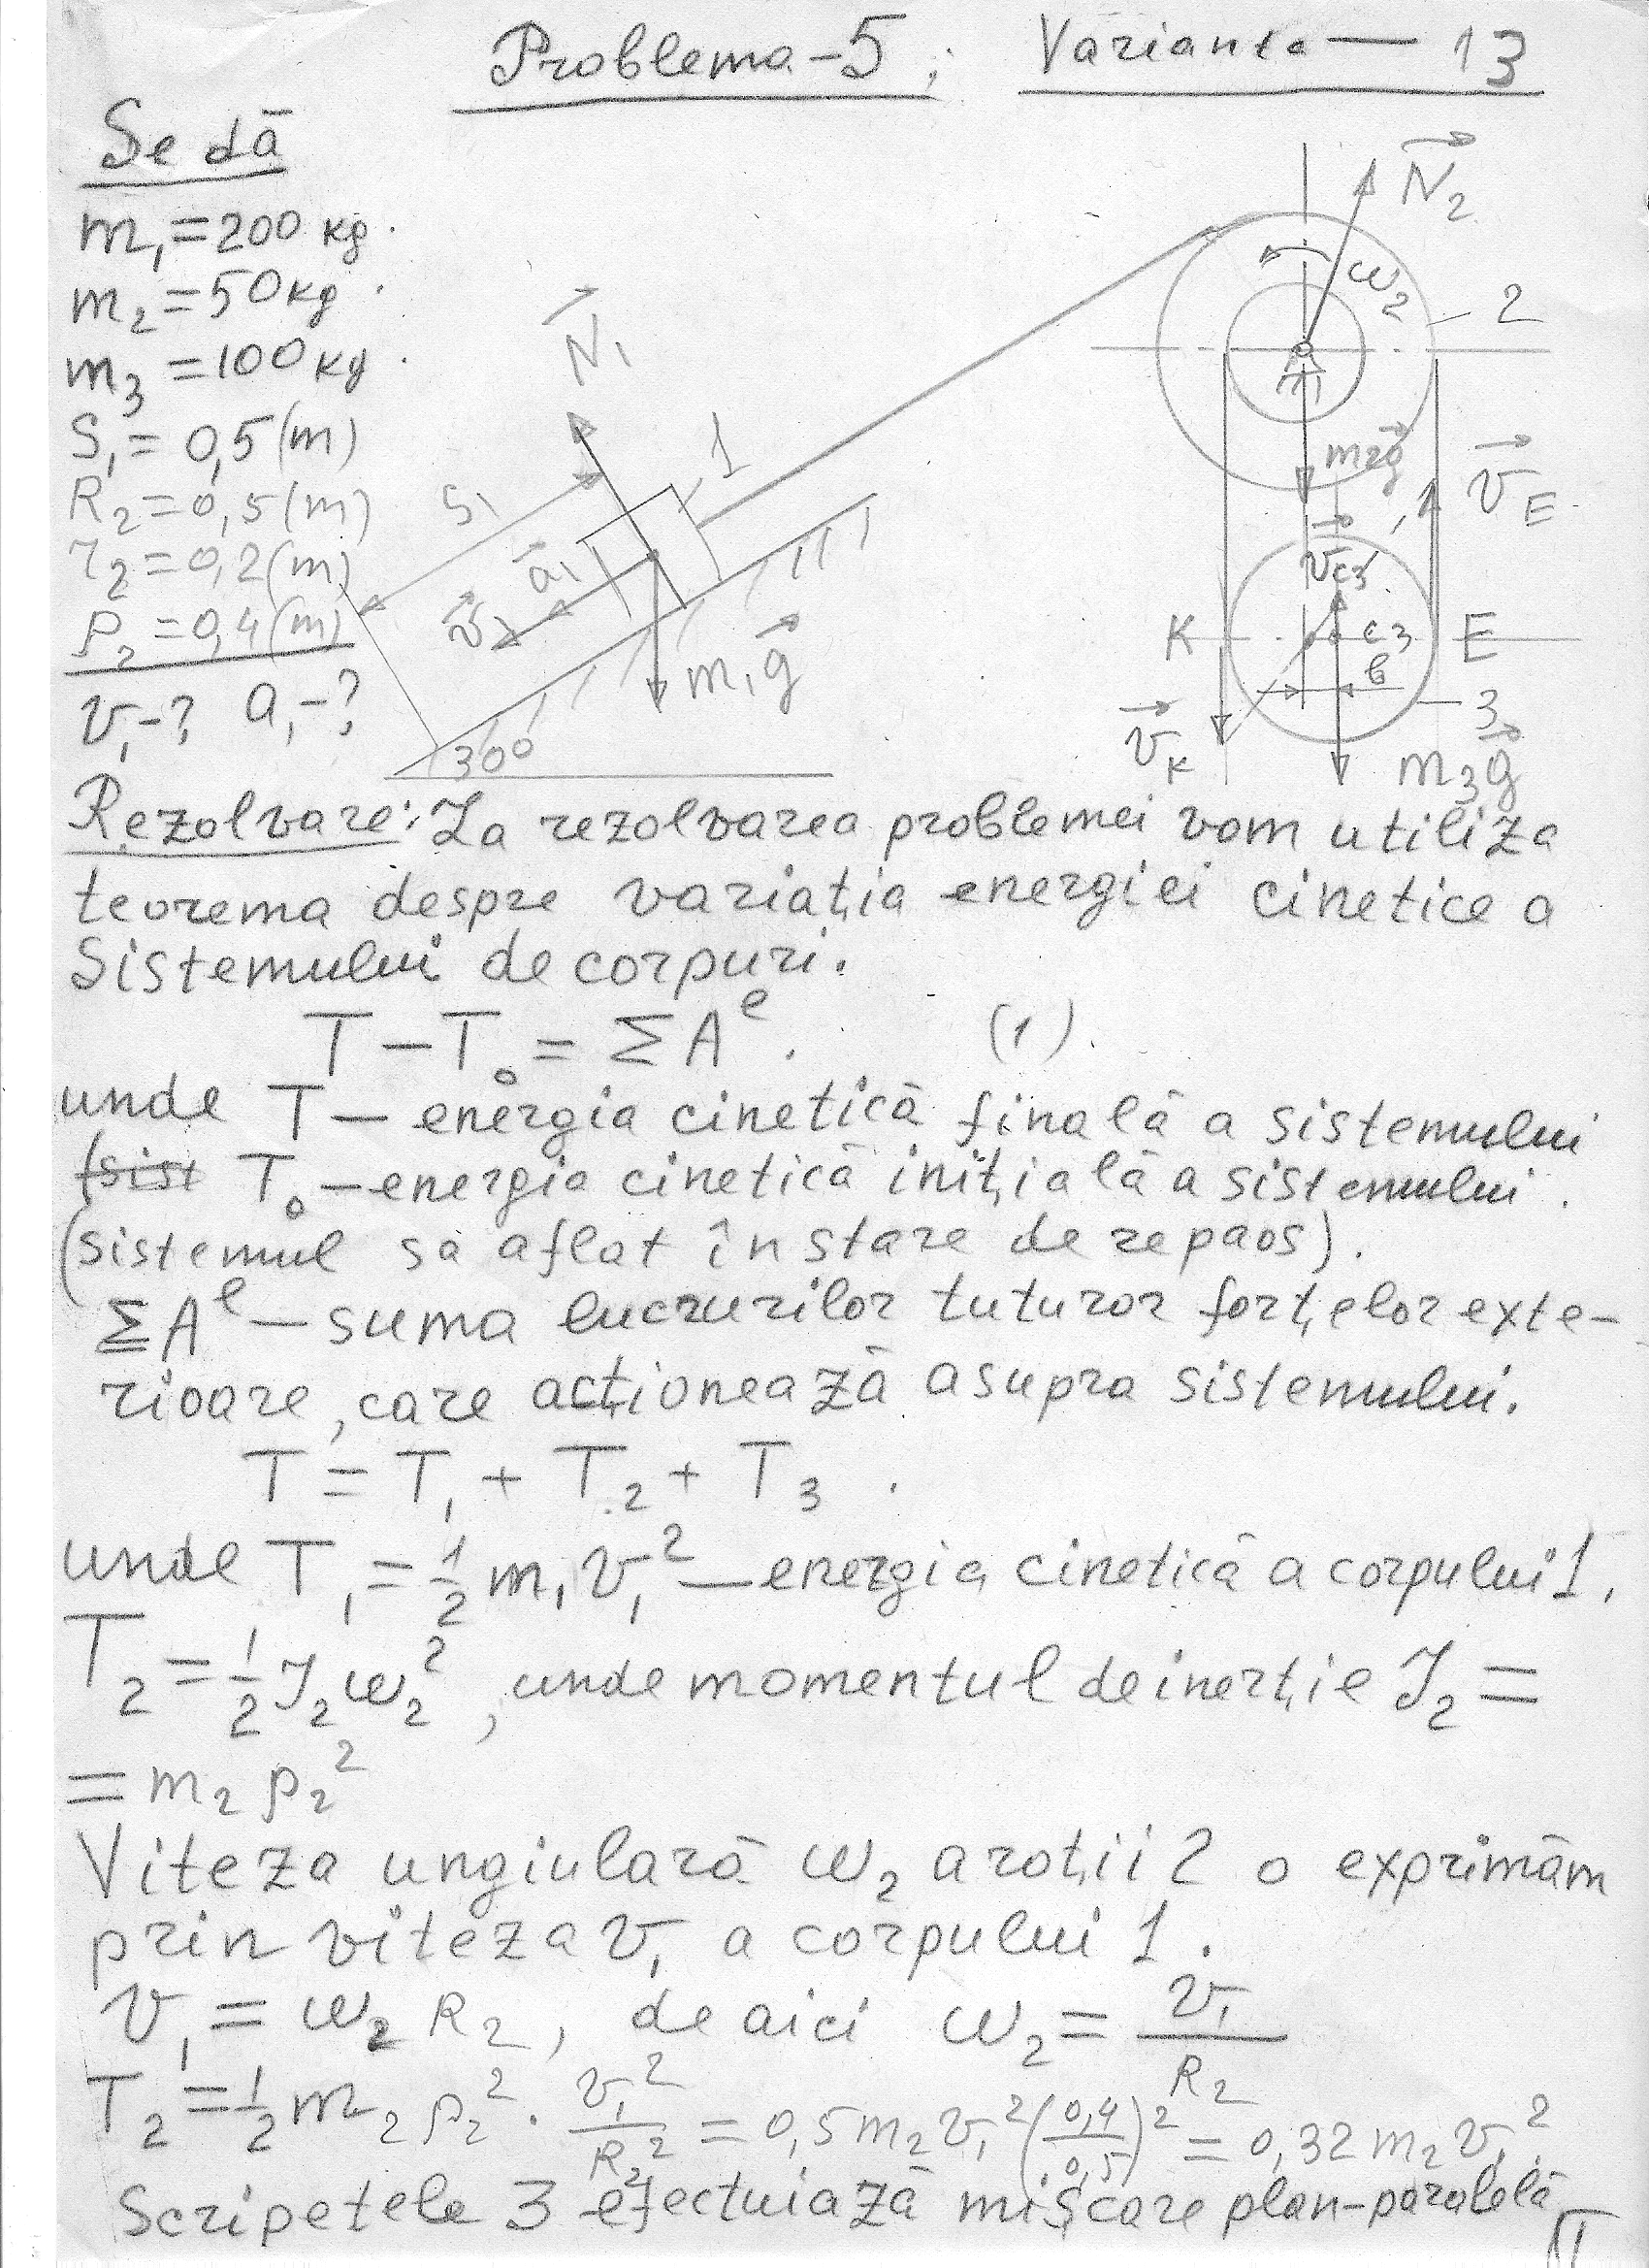 Problema-5; Varianta — 13
Se dă
m₁=200 kg.
m₂=50 kg.
m₃=100 kg.
S₁= 0,5(m)
R₂=0,5(m)
r₂=0,2(m)
ρ₂=0,4(m)
v₁-? a₁-?
N₁
S₁
1
a₁
v₁
m₁g
30°
N₂
ω₂
2
m₂g
v_E
v_C3
K
C₃
E
b
3
v_K
m₃g
Rezolvare: La rezolvarea problemei vom utiliza
teorema despre variația energiei cinetice a
Sistemului de corpuri.
T-T₀=ΣAᵉ. (1).
unde T — energia cinetică finală a sistemului
(sist T₀ — energia cinetică inițială a sistemului.
(sistemul sa aflat în stare de repaos).
ΣAᵉ — suma lucrurilor tuturor forțelor exte-
rioare, care acționează asupra sistemului.
T = T₁ + T₂ + T₃.
unde T₁=½ m₁v₁² — energia cinetică a corpului 1.
T₂=½J₂ω₂², unde momentul de inerție J₂=
= m₂ρ₂²
Viteza ungiulară ω₂ a roții 2 o exprimăm
prin viteza v₁ a corpului 1.
v₁ = ω₂ R₂, de aici ω₂= v₁/R₂
T₂=½ m₂ρ₂² · v₁²/R₂² = 0,5m₂v₁²(0,4/0,5)² = 0,32m₂v₁².
Scripetele 3 efectuiază mișcare plan-paralelă